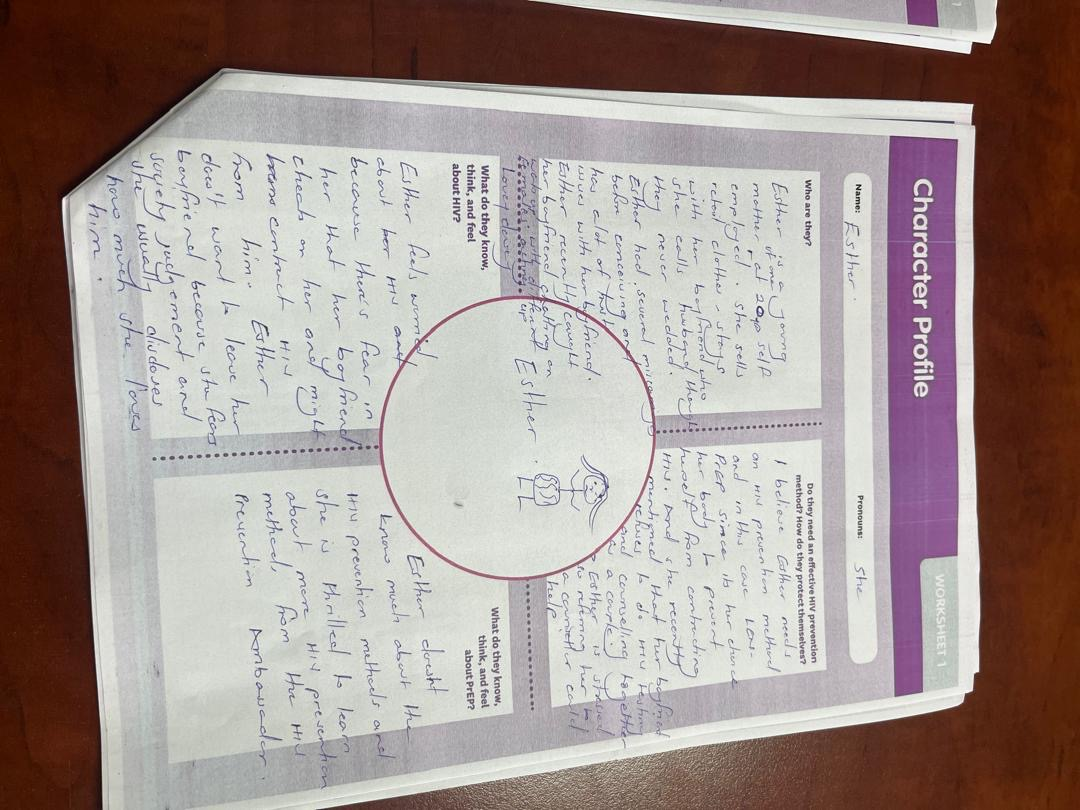 WORKSHEET 1
Character Profile
Name: Esther.
Pronouns: She
Who are they?
Esther is a young
mother at 20yo self
employed. She sells
retail clothes - stays
with her boyfriend who
she calls husband though
they never wedded.
Esther had several
before conceiving and
has a lot of
issues with her boyfriend.
Esther recently caught
her boyfriend cheating on
with different
Do they need an effective HIV prevention
method? How do they protect themselves?
I believe Esther needs
an HIV prevention method
and in this case
PrEP since its her choice
her body to prevent
herself from contracting
HIV. And she recently
mentioned that her boyfriend
refuses to do HIV testing
and canseling together
as a couple.
Esther is stressed
so refering her to
a could
help.
Esther.
What do they know,
think, and feel
about HIV?
Esther feels worried
about HIV and
because there's fear in
her that her boyfriend
cheats on her and might
contract HIV
from him. Esther
does't want to leave her
boyfriend because she fears
society judgement and
she usually discloses
how much she loves
him.
What do they know,
think, and feel
about PrEP?
Esther does't
know much about the
HIV prevention methods and
she is thrilled to learn
about more HIV prevention
method, from the HIV
Prevention Ambassador.